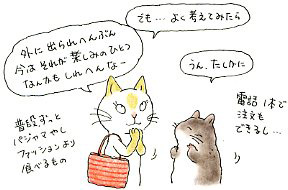 外に出られへんぶん
今はそれが楽しみのひとつ
なんかも しれへんなー
でも…よく考えてみたら
うん、たしかに
普段ずっと
パジャマやし
ファッションより
食べるもの
電話1本で
注文も
できるし…